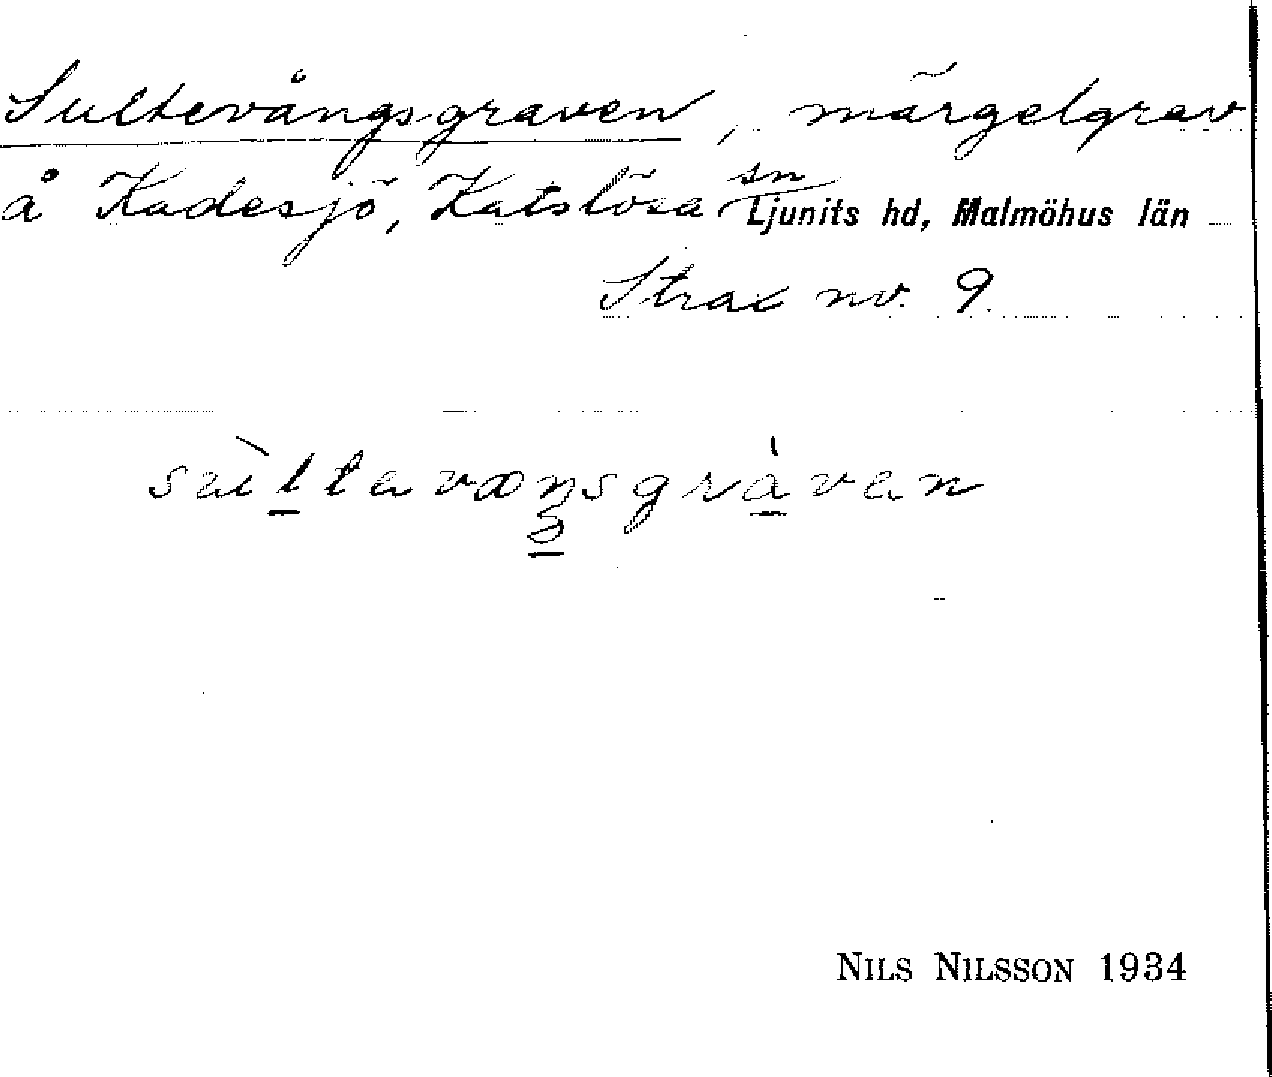 Sultevångsgraven, märgelgrav
å Kadesjö, Katslösa sn Ljunits hd, Malmöhus län
Strax nv. 9.
NILS NILSSON 1934